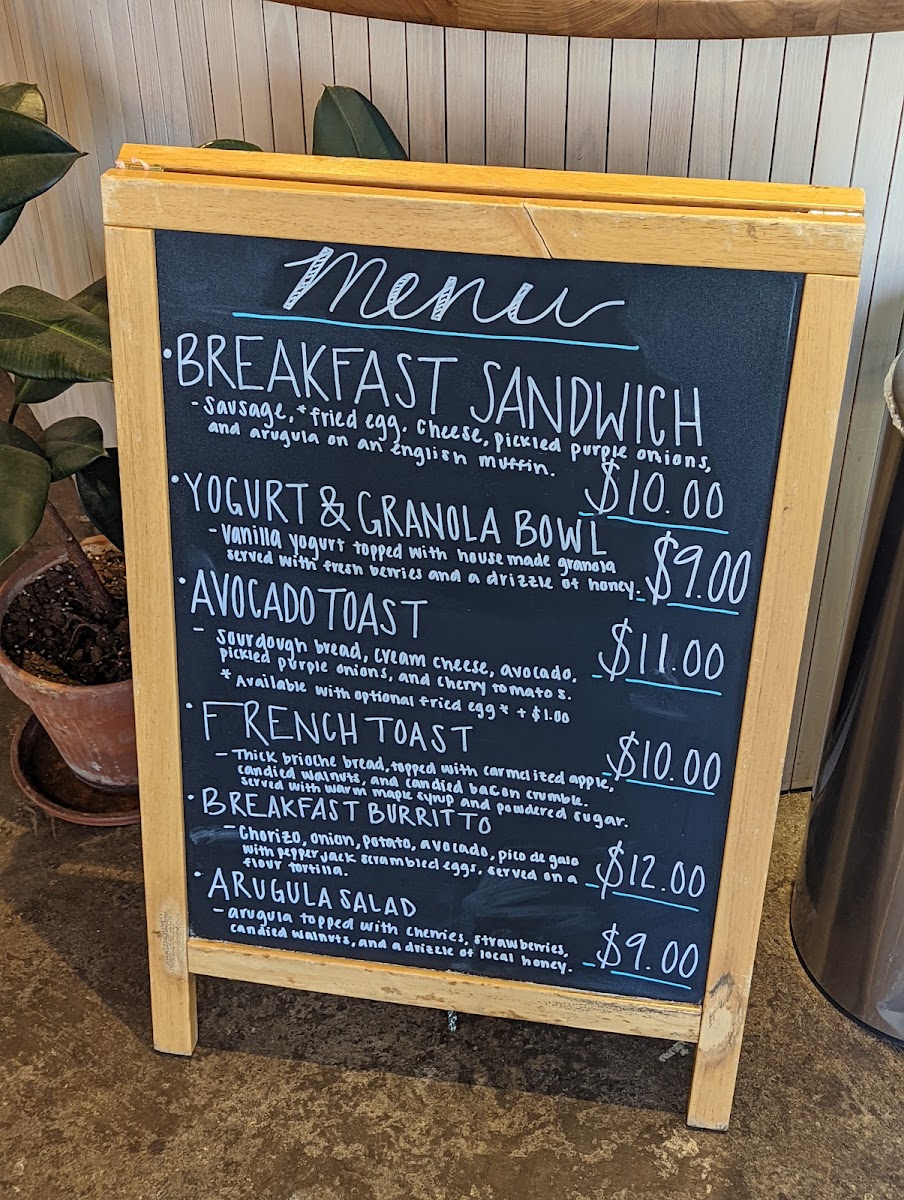 Menu
•BREAKFAST SANDWICH
-Sausage, *fried egg, cheese, pickled purple onions,
and arugula on an English muffin.
$10.00
•YOGURT & GRANOLA BOWL
-Vanilla yogurt topped with house made granola
served with fresh berries and a drizzle of honey.
-$9.00
•AVOCADO TOAST
- Sourdough bread, cream cheese, avocado,
pickled purple onions, and cherry tomatos.
-$11.00
*Available with optional fried egg* + $1.00
•FRENCH TOAST
- Thick brioche bread, topped with carmelized apple,
candied walnuts, and candied bacon crumble.
served with warm maple syrup and powdered sugar.
-$10.00
•BREAKFAST BURRITTO
-Chorizo, onion, potato, avocado, pico de galo
with pepper jack scrambled eggs, served on a
flour tortilla.
-$12.00
•ARUGULA SALAD
-arugula topped with cherries, strawberries,
candied walnuts, and a drizzle of local honey.
-$9.00